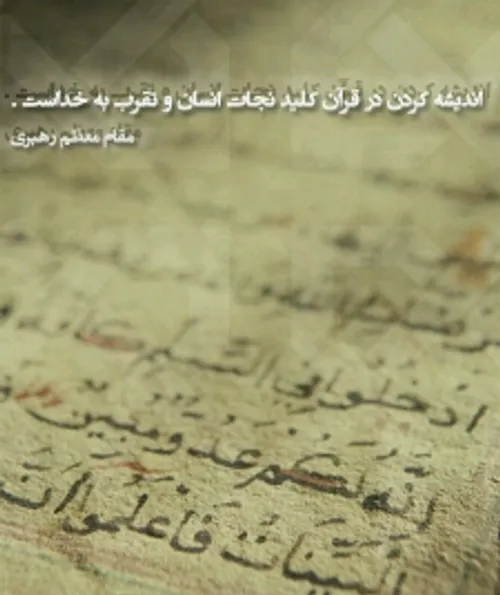 اندیشه کردن در قرآن کلید نجات انسان و تقرب به خداست .
مقام معظم رهبری
مرضات الله و
ادخلوا في السلم كافة و
إنه لكم عدو مبين
البينات فاعلموا أن